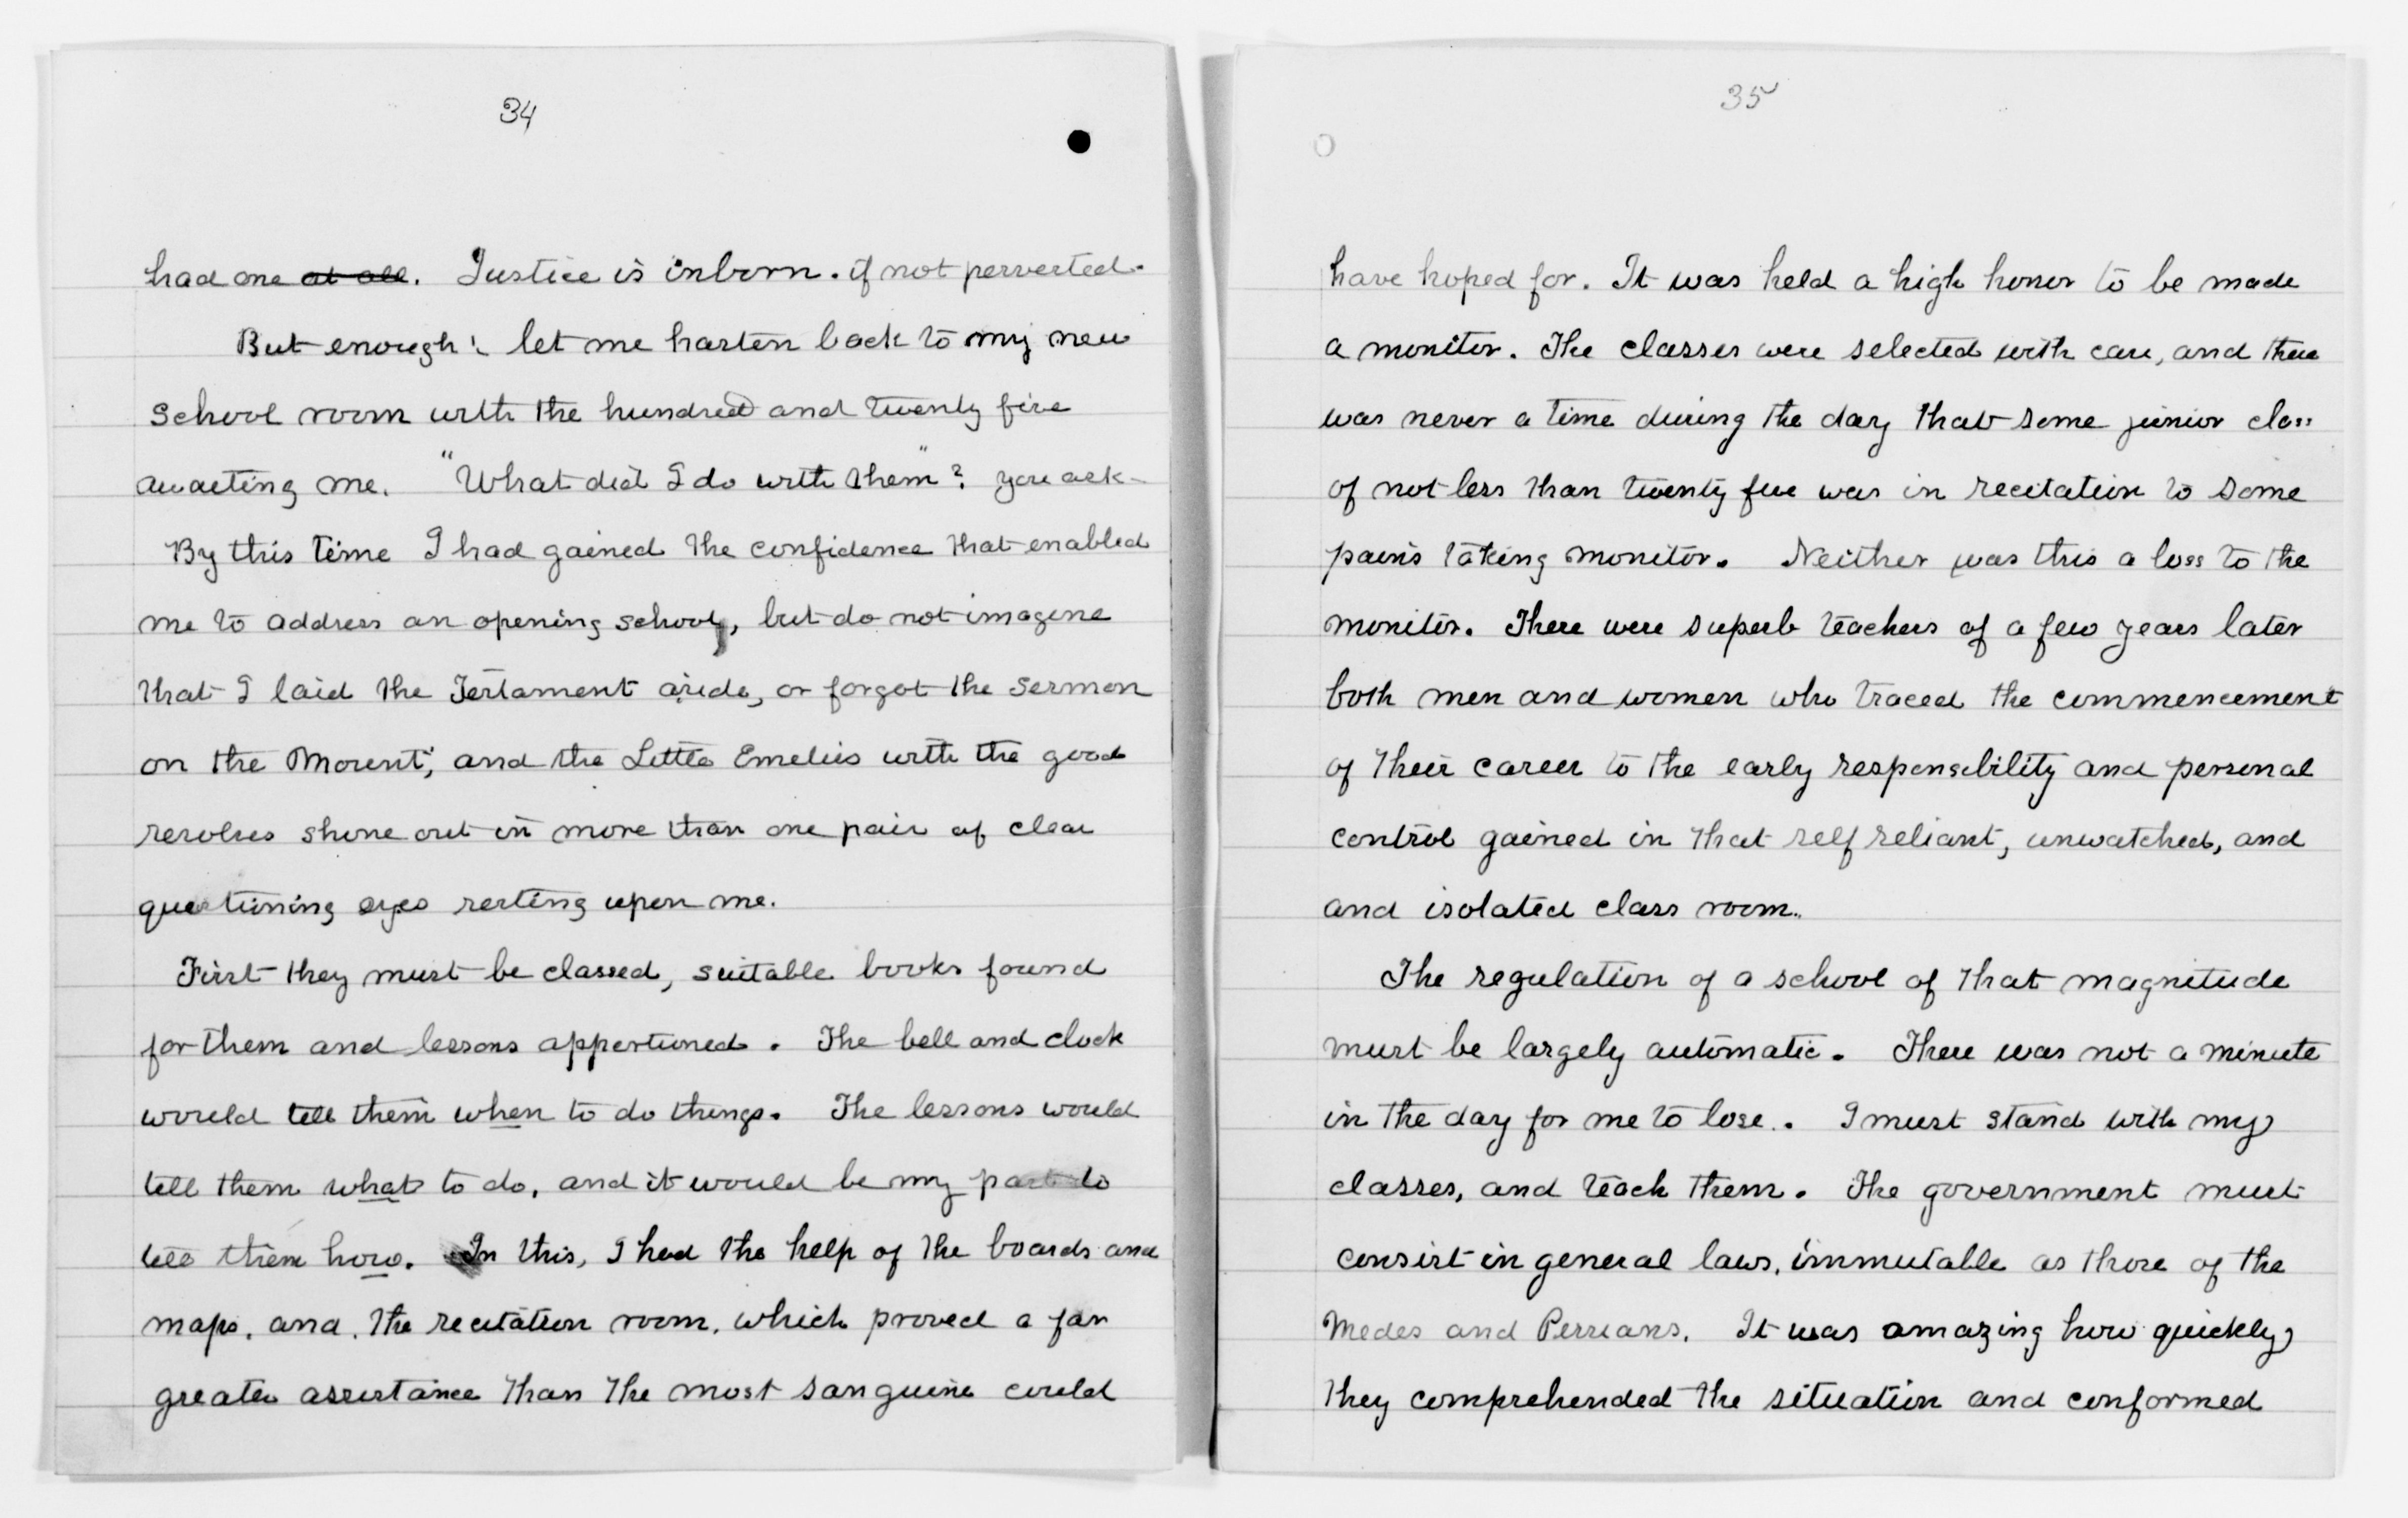 34
had one at all. Justice is inborn. if not perverted.
But enough! let me hasten back to my new
school room with the hundred and twenty five
awaiting me. "What did I do with them"? you ask-
By this time I had gained the confidence that enabled
me to address an opening school, but do not imagine
that I laid the Testament aside, or forgot the Sermon
on the Mount; and the Little Emelies with the good
resolves shone out in more than one pair of clear
questioning eyes resting upon me.
First they must be classed, suitable books found
for them and lessons apportioned. The bell and clock
would tell them when to do things. The lessons would
tell them what to do, and it would be my part to
tell them how. In this, I had the help of the boards and
maps, and, the recitation room, which proved a far
greater assistance than the most sanguine could
35
have hoped for. It was held a high honor to be made
a monitor. The classes were selected with care, and there
was never a time during the day that some junior class
of not less than twenty five was in recitation to some
pains taking monitor. Neither was this a loss to the
monitor. There were superb teachers of a few years later
both men and women who traced the commencement
of their career to the early responsibility and personal
control gained in that self reliant, unwatched, and
and isolated class room.
The regulation of a school of that magnitude
must be largely automatic. There was not a minute
in the day for me to lose. I must stand with my
classes, and teach them. The government must
consist in general laws, immutable as those of the
Medes and Persians. It was amazing how quickly
they comprehended the situation and conformed